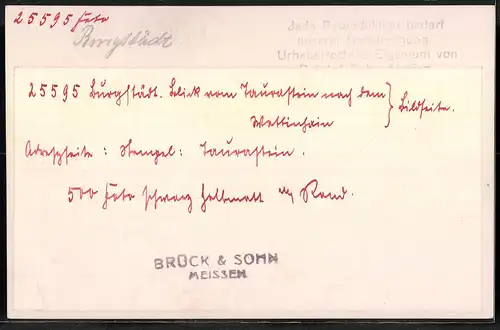 25595 Foto
Burgstädt
Jede Reproduktion bedarf
unserer Genehmigung
Urheberrecht u. Eigentum von
25595 Burgstädt. Blick vom Taurastein nach dem } Bildseite.
Wettinhain
Adreßseite: Stempel: Taurastein.
500 Foto schwarz halbmatt m/ Rand.
BRÜCK & SOHN
MEISSEN